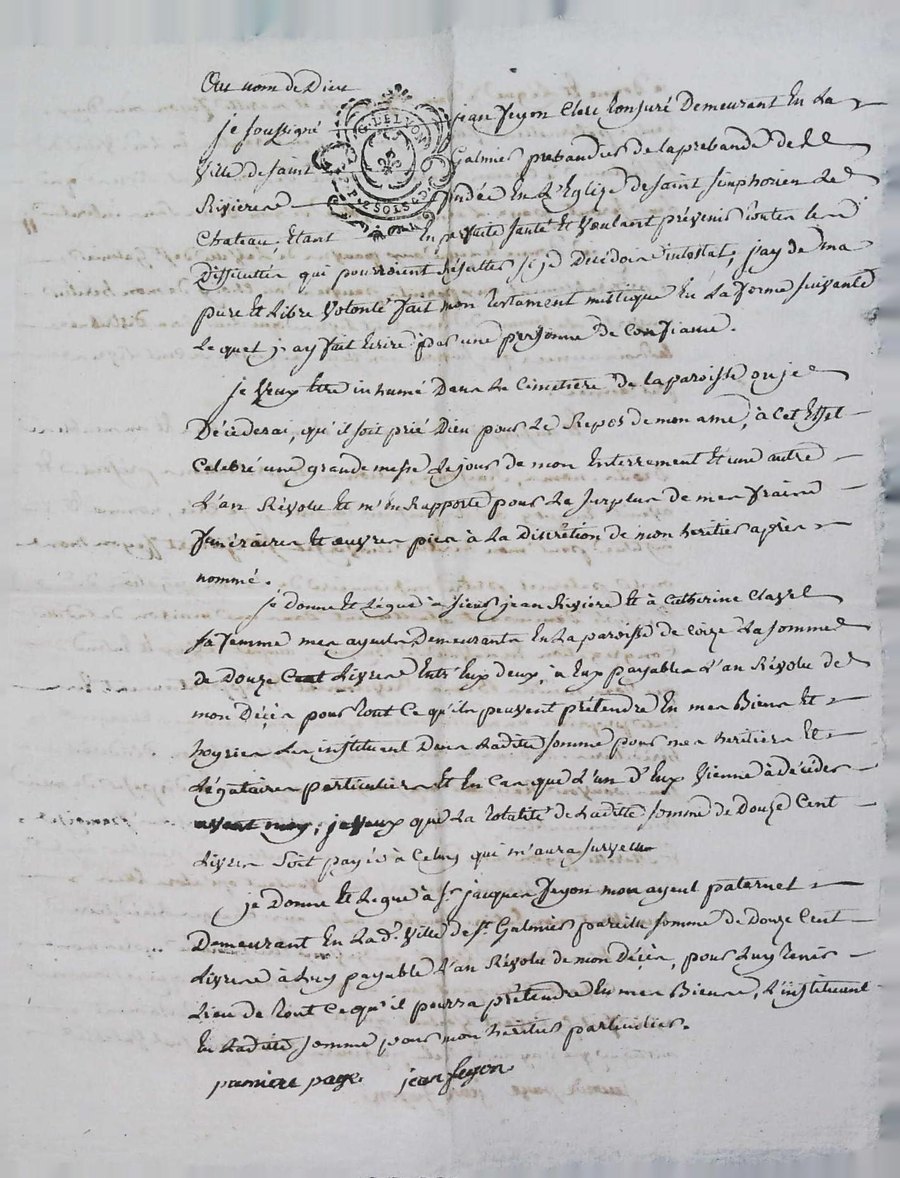 Au nom de Dieu
je soussigné jean feyon Clerc tonsuré Demeurant En La
Ville de saint Galmier prebandier de la prebande de
G. DE LYON
Riviere fondée En L'Eglize de saint simphorien Le
Chateau, Etant En parfaite santé Et Voulant prévenir toutes les
Difficultés qui pourroient Résulter si je Decedois intestat, j'ay de ma
pure Et Libre Volonté fait mon testament mistique En La forme suivante
Lequel j'ay fait Ecrire par une personne De Confiance.
je Veux Etre inhumé Dans Le Cimetiere de la paroisse ou je
Décéderai, qu'il soit prié Dieu pour Le Repos de mon ame, à Cet Effet
Celebré une grande messe Le jour de mon Enterrement Et une autre
L'an Révolu Et m'en Rapporte pour Le surplus de mes fraix
funéraires Et œuvres pies à La Discrétion de mon heritier après
nommé.
je Donne Et Légue à sieur jean Riviere Et à Catherine Clavel
sa femme mes ayeuls Demeurants En La paroisse de Coize La somme
de Douze Cent Livres Entr'Eux deux, à Eux payable L'an Révolu de
mon Décès pour tout Ce qu'ils peuvent prétendre En mes Biens Et
hoyries Les instituant Dans Ladite somme pour mes heritiers Et
Légataires particuliers Et En Cas que L'un d'Eux Vienne à décéder
avant moy, je Veux que La totalité de Ladite somme de Douze Cent
Livres soit payée à Celuy qui m'aura survecu
je Donne Et Legue à sr. jacques feyon mon ayeul paternel
Demeurant En Lad. Ville de st. Galmier pareille somme de Douze Cent
Livres à Luy payable L'an Révolu de mon Décès, pour Luy tenir
Lieu de tout Ce qu'il pourra prétendre En mes Biens, L'instituant
En Ladite somme pour mon heritier particulier.
pamiere page. jean feyon